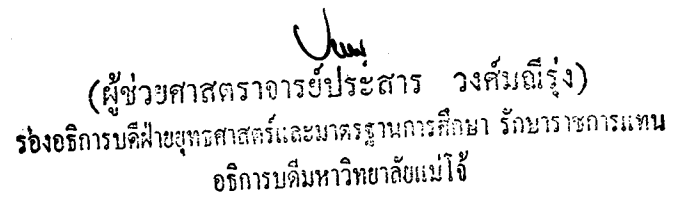 (ผู้ช่วยศาสตราจารย์ประสาร วงศ์มณีรุ่ง)
รองอธิการบดีฝ่ายยุทธศาสตร์และมาตรฐานการศึกษา รักษาราชการแทน
อธิการบดีมหาวิทยาลัยแม่โจ้